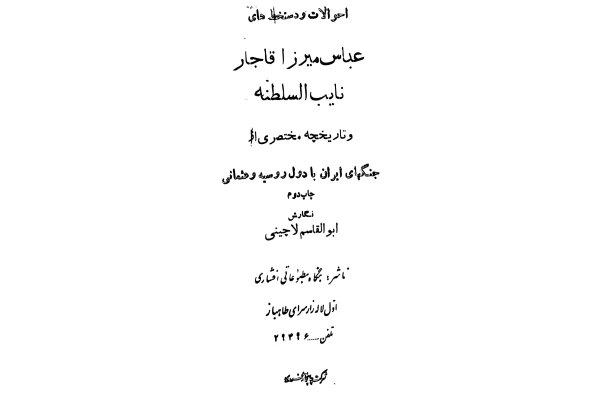 احوالات و دستخط های
عباس میرزا قاجار
نایب السلطنه
و تاریخچه مختصری از
جنگهای ایران با دول روسیه و عثمانی
چاپ دوم
نگارش
ابوالقاسم لاچینی
ناشر: بنگاه مطبوعاتی افشاری
اول لاله زار سرای طاهباز
تلفن ..... ۲۹۴۹۶
شرکت چاپخانه